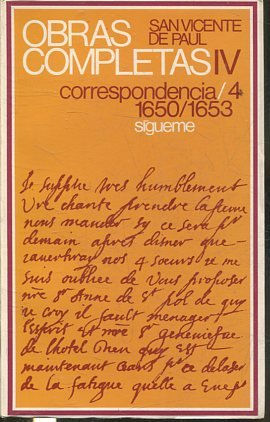 OBRAS
COMPLETAS IV
SAN VICENTE
DE PAUL
correspondencia/4
1650/1653
sígueme
Je supplie tres humblement
Vre charite prendre la peine
nous mander sy ce sera pr
demain apres disner que
nos 4 soeurs je me
suis oubliee de vous proposer
nre Sr Anne de St pol de quy
je croy il fault menager
l'esprit et nre Sr geneviefve
de l'hotel Dieu quy est
maintenant ceans pr ce delaser
de la fatigue quelle a